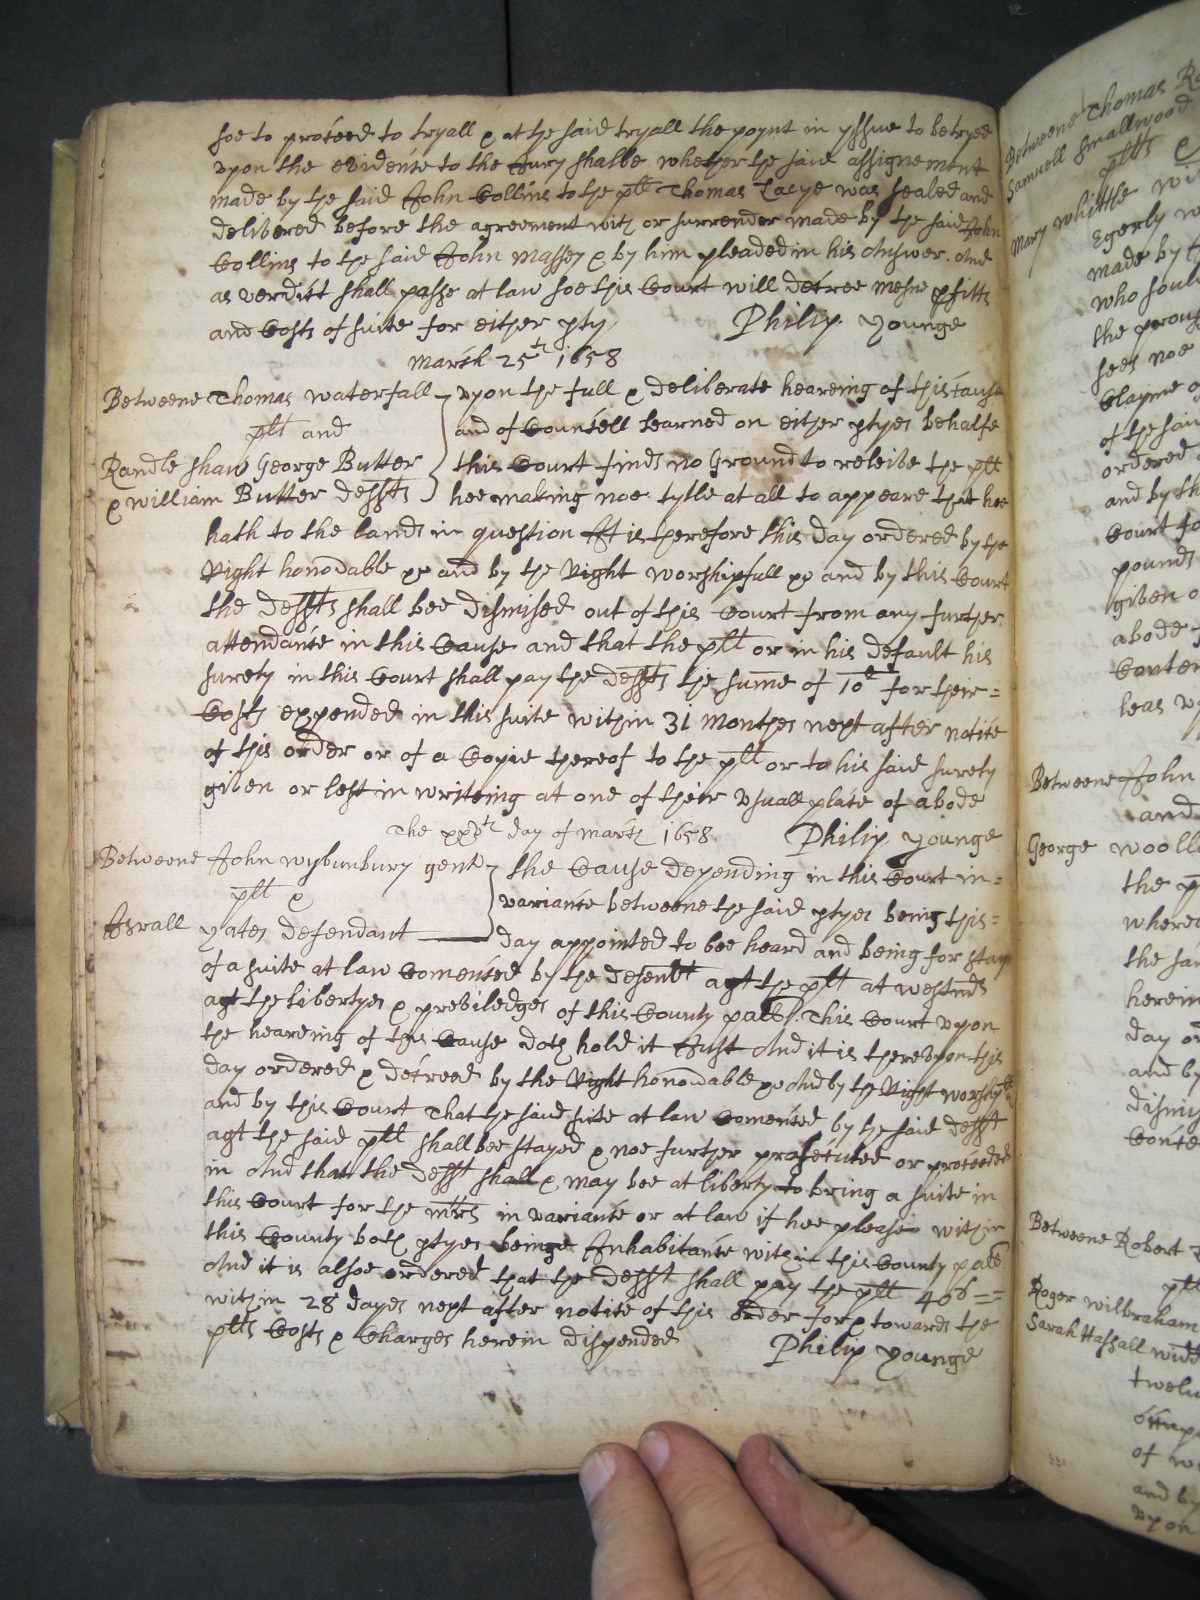 soe to proceed to tryall & at the said tryall the poynt in yssue to betryed
upon the evidence to the Jury shalbe whether the said assignement
made by the said John Collins to the plt Thomas was sealed and
delivered before the agreement with or surrender made by the said John
Collins to the said John Massey & by him pleaded in his Answer. And
as verdict shall passe at law soe this Court will decree mesne pfitts
and Costs of suite for either pty
Philip Younge
March 25th 1658
Betweene Thomas Waterfall
plt and
Randle Shaw George Butter
& William Butter deffts
upon the full & deliberate heareing of this cause
and of Councell learned on either ptyes behalfe
this Court finds no Ground to releive the plt
hee making noe tytle at all to appeare that hee
hath to the lands in question It is therefore this day ordered by the
Right honorable &c and by the Right worshipfull &c and by this Court
the deffts shall bee dismised out of this Court from any further
attendance in this Cause and that the plt or in his default his
surety in this Court shall pay the deffts the sume of 10s for their =
Costs expended in this suite within 31 Monthes next after notice
of this order or of a Copie thereof to the plt or to his said surety
given or left in writeing at one of their usuall place of abode
Philip Younge
The xxvth day of March 1658
Betweene John Wybunbury gent
plt &
Asrall Yates defendant
the Cause depending in this Court in =
variance betweene the said ptyes being this =
day appointed to bee heard and being for stay
of a suite at law Comenced by the defendt agt the plt at
agt the libertyes & priviledges of this County pallt. This Court upon
the heareing of this Cause doth hold it Just And it is thereupon this
day ordered & decreed by the Right honorable &c And by the Right worshpll
and by this Court That the said suite at law Comenced by the said defft
agt the said plt shall bee stayed & noe further prosecuted or proceeded
in And that the defft shall & may bee at liberty to bring a suite in
this Court for the mtrs in variance or at law if hee please within
this County both ptyes beinge Inhabitante within this County pall
And it is alsoe ordered that the defft shall pay the plt 40s ==
within 28 dayes next after notice of this order for & towards the
plts Costs & Charges herein dispended
Philip Younge
Betweene Thomas
Samuell Smallwood
plts
Mary Whittle
Egerly
made by
who
the
sees noe
Clayme
of the said
ordered
and by th
Court
pounds
given
abode
Conten
leas
Betweene John
and
George
the p
where
the
herein
day or
and by
dismis
Conte
Betweene Robert
plt
Roger Wilbraham
Sarah Hassall widd
twel
of
and by
upon